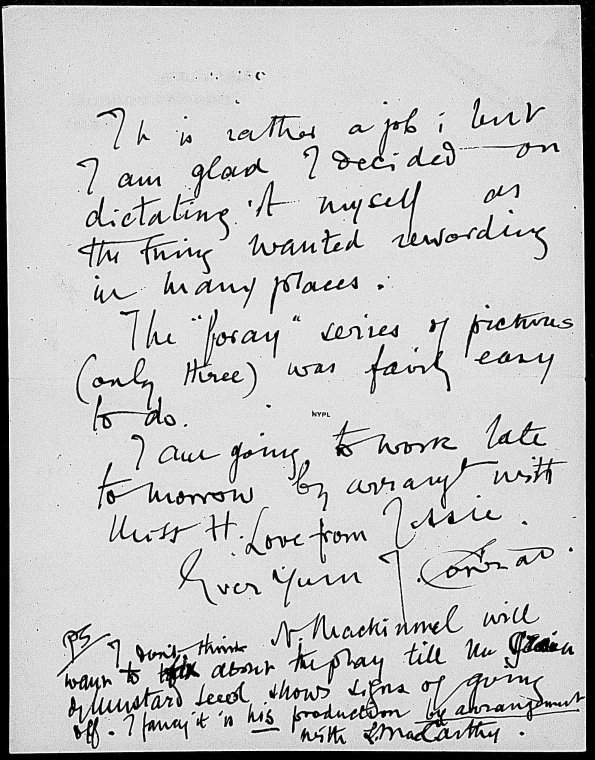 It is rather a job; but
I am glad I decided on
dictating it myself as
the thing wanted rewording
in many places.
The "foray" series of pictures
(only three) was fairly easy
to do.
NYPL
I am going to work late
to morrow by arrangt with
Miss H. Love from Jessie.
Ever Yours J. Conrad.
PS I don't think N. Mackinnel will
want to talk about the play till the Grain
of Mustard Seed shows signs of going
off. I fancy it is his production by arrangement
with L. MacCarthy.